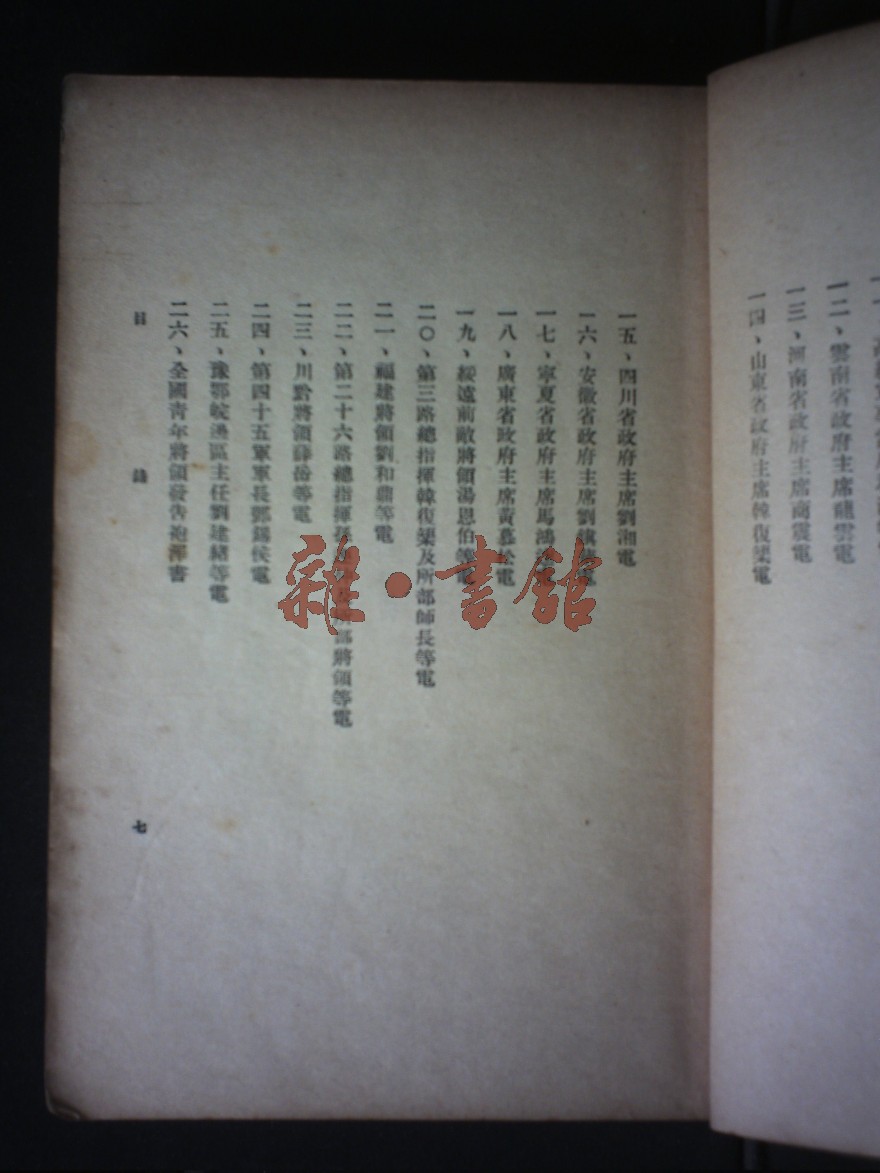 一二、雲南省政府主席龍雲電
一三、河南省政府主席商震電
一四、山東省政府主席韓復榘電
一五、四川省政府主席劉湘電
一六、安徽省政府主席劉
一七、寧夏省政府主席馬鴻
一八、廣東省政府主席黃慕松電
一九、綏遠前敵將領湯恩伯等電
二〇、第三路總指揮韓復榘及所部師長等電
二一、福建將領劉和鼎等電
二二、第二十六路總指揮孫 部將領等電
二三、川黔將領薛岳等電
二四、第四十五軍軍長鄧錫侯電
二五、豫鄂皖 區主任劉建緒等電
二六、全國青年將領發告袍澤書
目 錄 七
雜·書館